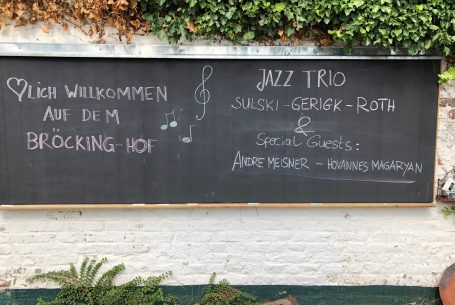 ♡LICH WILLKOMMEN
AUF DEM
BRÖCKING-HOF
JAZZ TRIO
SULSKI-GERIGK-ROTH
&
Special Guests:
ANDRE MEISNER - HOVANNES MAGARYAN